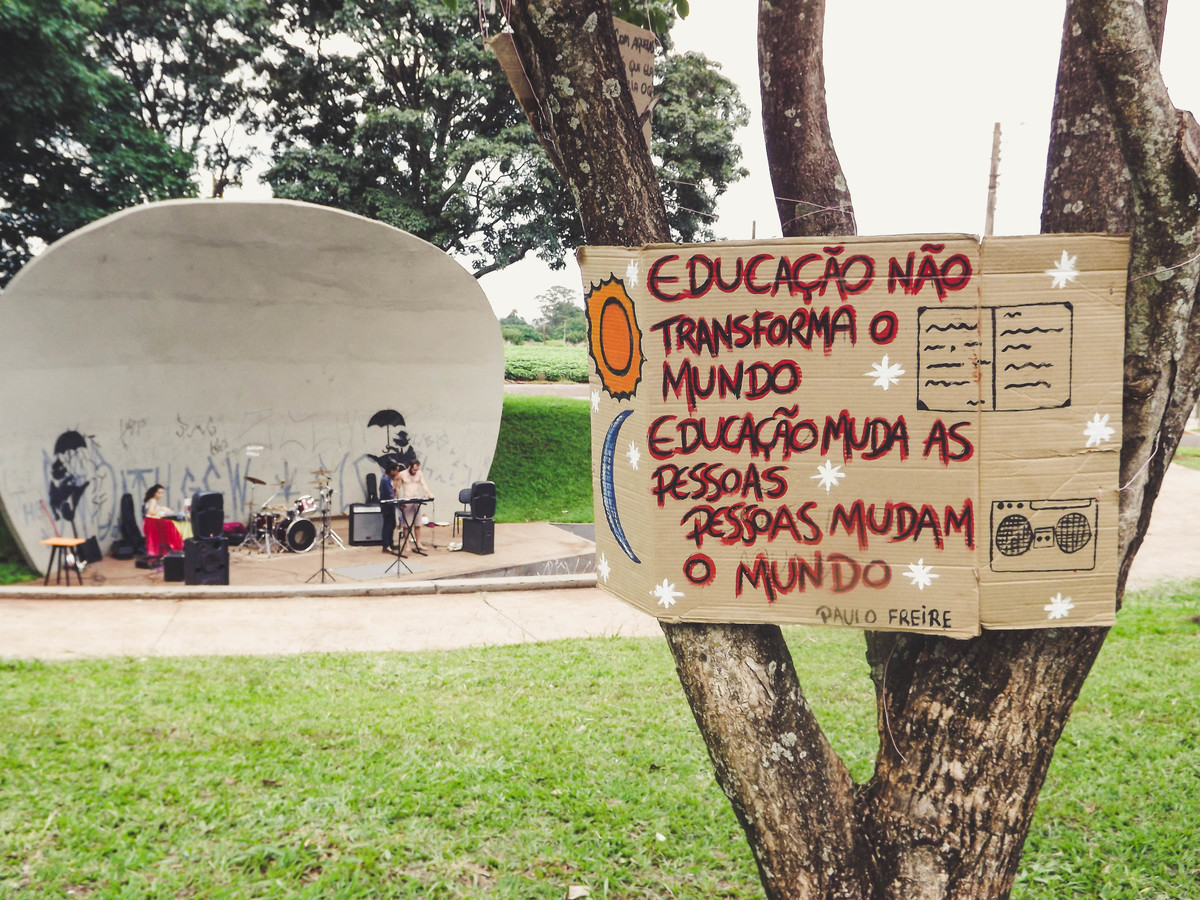 EDUCAÇÃO NÃO
TRANSFORMA O
MUNDO
EDUCAÇÃO MUDA AS
PESSOAS
PESSOAS MUDAM
O MUNDO
PAULO FREIRE